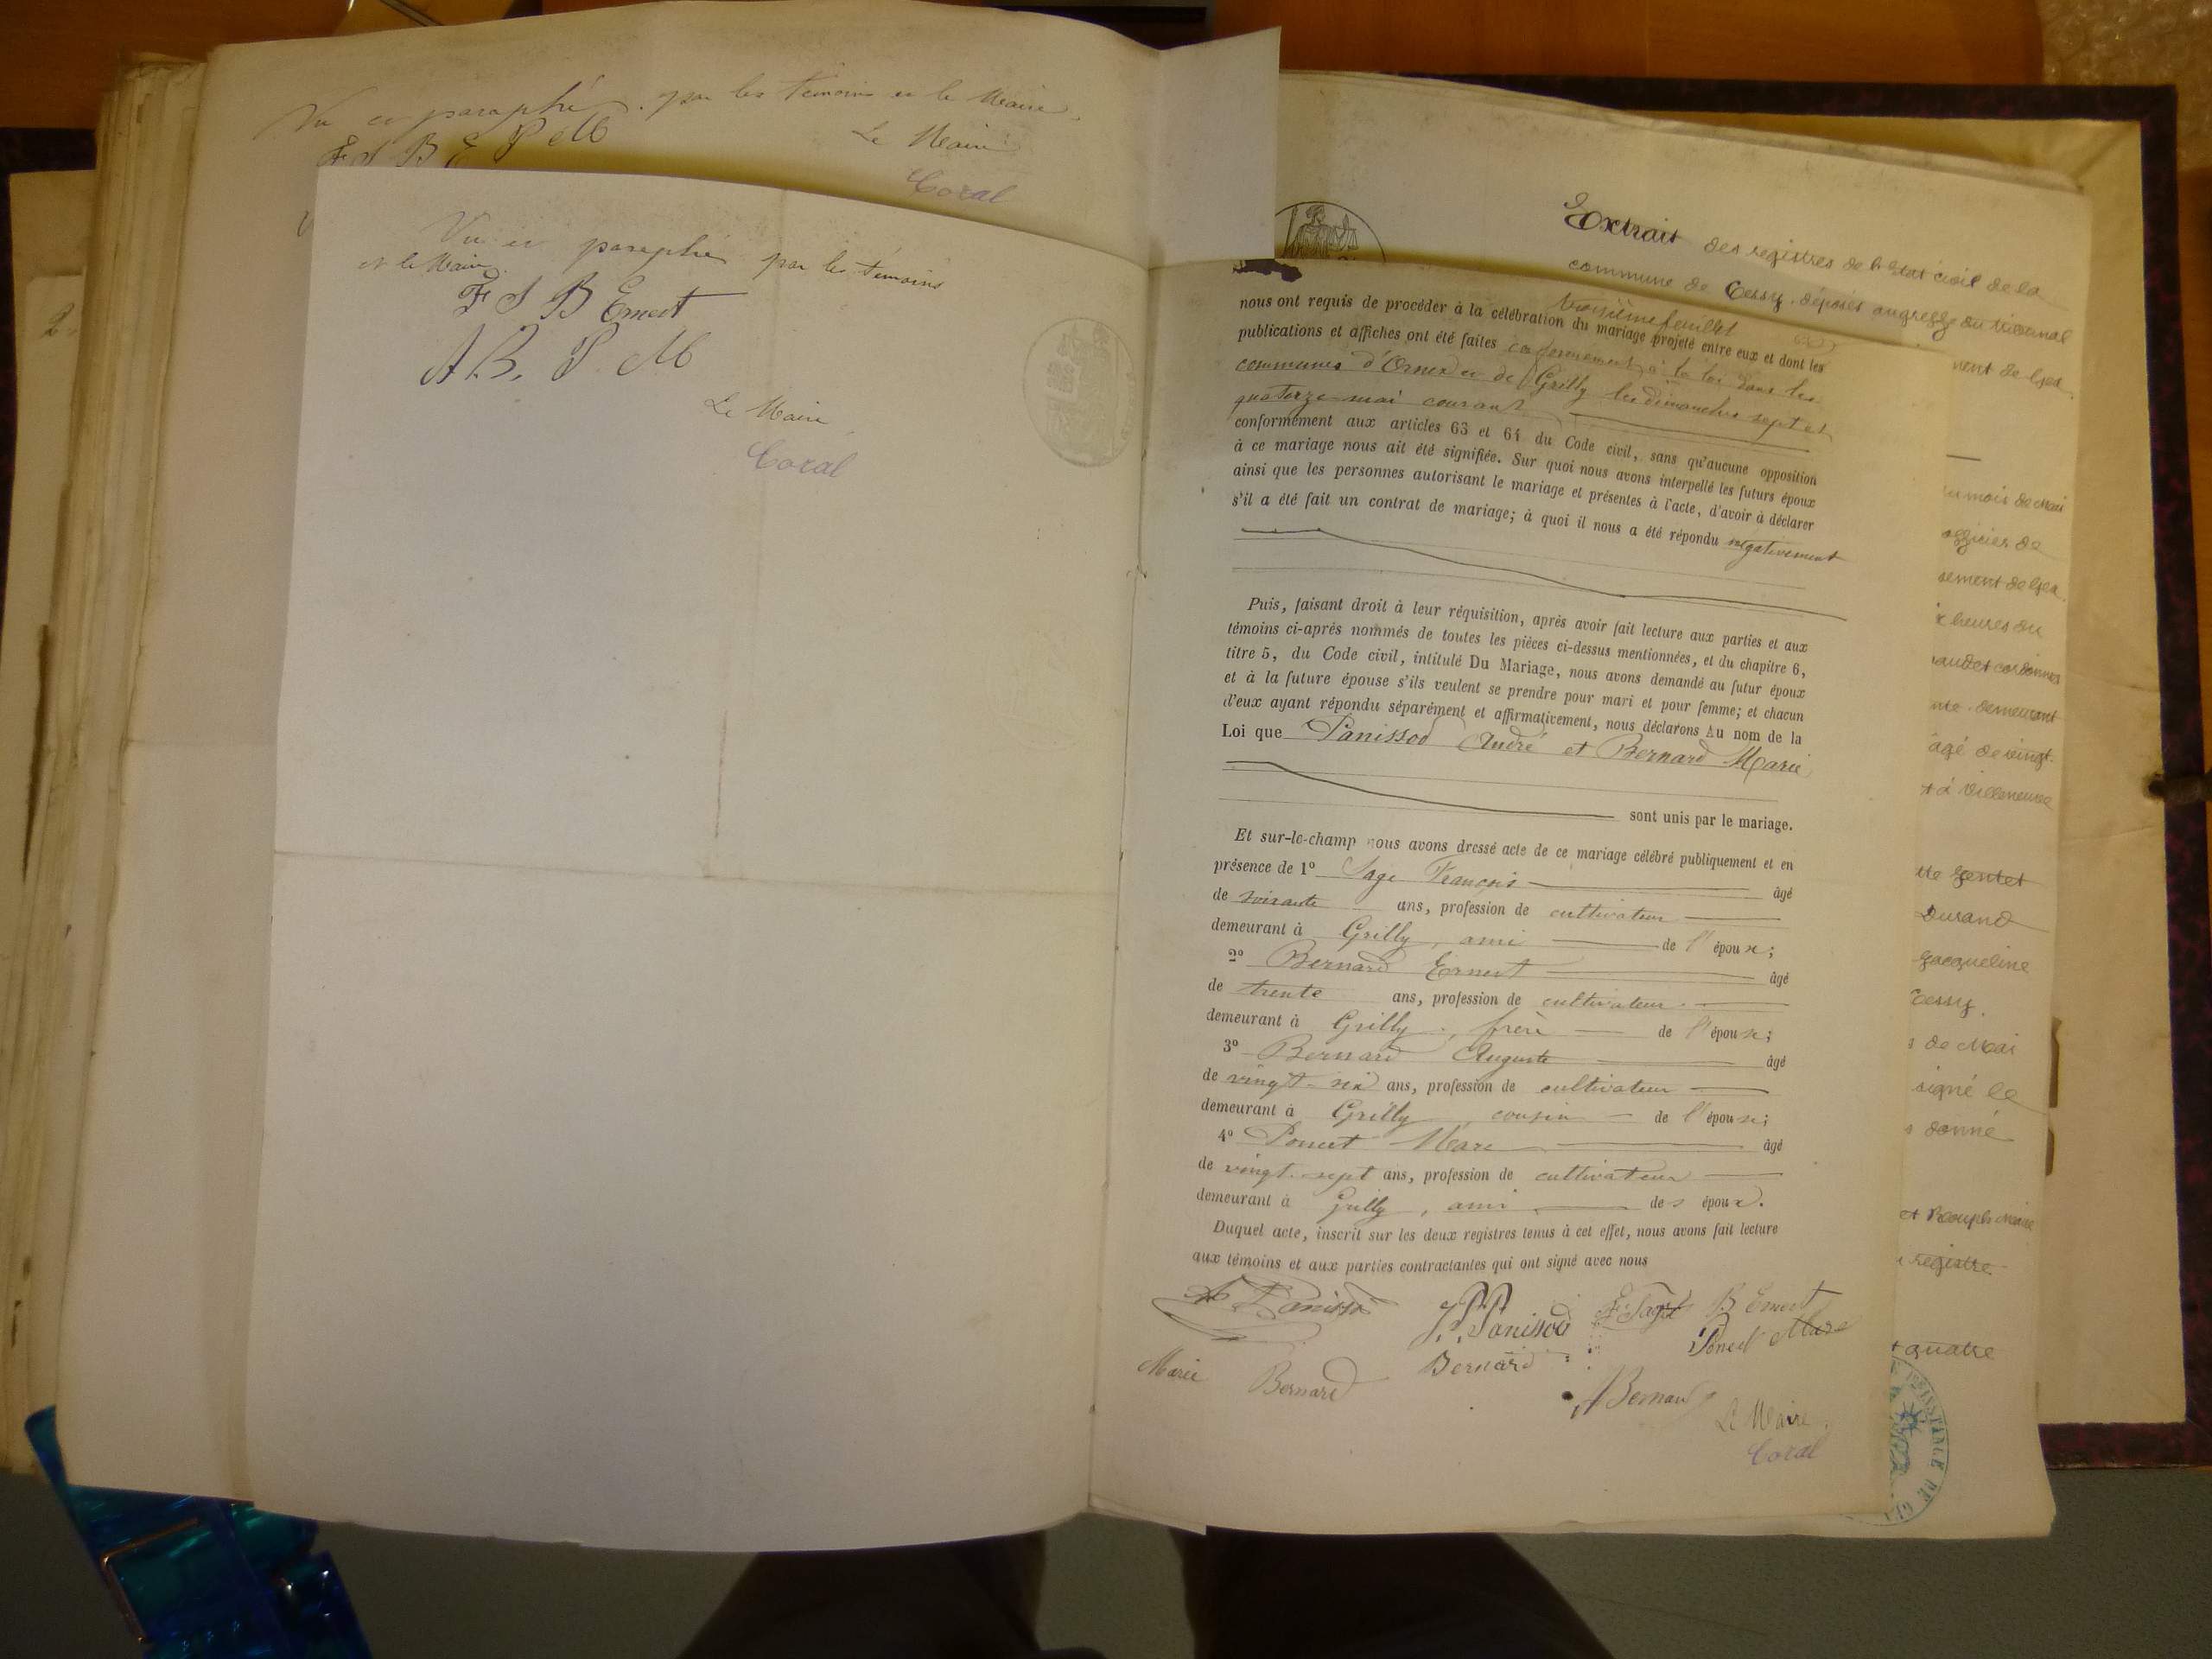 Vu et paraphé par les témoins et le Maire
F S B E P M
Le Maire
Coral
Vu et paraphé par les témoins
et le Maire
F S B Ernest
A B. P M
Le Maire
Coral
Extrait des registres de l'Etat civil de la
commune de Cessy, déposés au greffe du tribunal
troisième feuillet
nous ont requis de procéder à la célébration du mariage projeté entre eux et dont les
publications et affiches ont été faites conformément à la loi dans les
communes d'Ornex et de Grilly les dimanches sept et
quatorze mai courant
conformément aux articles 63 et 64 du Code civil, sans qu'aucune opposition
à ce mariage nous ait été signifiée. Sur quoi nous avons interpellé les futurs époux
ainsi que les personnes autorisant le mariage et présentes à l'acte, d'avoir à déclarer
s'il a été fait un contrat de mariage; à quoi il nous a été répondu négativement
Puis, faisant droit à leur réquisition, après avoir fait lecture aux parties et aux
témoins ci-après nommés de toutes les pièces ci-dessus mentionnées, et du chapitre 6,
titre 5, du Code civil, intitulé Du Mariage, nous avons demandé au futur époux
et à la future épouse s'ils veulent se prendre pour mari et pour femme; et chacun
d'eux ayant répondu séparément et affirmativement, nous déclarons Au nom de la
Loi que Panissod André et Bernard Marie
sont unis par le mariage.
Et sur-le-champ nous avons dressé acte de ce mariage célébré publiquement et en
présence de 1° Sage François âgé
de soixante ans, profession de cultivateur
demeurant à Grilly, ami de l'époux;
2° Bernard Ernest âgé
de trente ans, profession de cultivateur
demeurant à Grilly, frère de l'épouse;
3° Bernard Auguste âgé
de vingt-six ans, profession de cultivateur
demeurant à Grilly, cousin de l'épouse;
4° Poncet Marc âgé
de vingt-sept ans, profession de cultivateur
demeurant à Grilly, ami des époux.
Duquel acte, inscrit sur les deux registres tenus à cet effet, nous avons fait lecture
aux témoins et aux parties contractantes qui ont signé avec nous
A Panissod J. Panissod F Sage B Ernest
Poncet Marc
Marie Bernard Bernard
A Bernard
Le Maire
Coral
ment de Gex
du mois de Mai
officier de
sement de Gex
heures du
demeurant
âgé de vingt
à Villeneuve
Durand
Jacqueline
Cessy.
de Mai
signé le
donné
registre
quatre